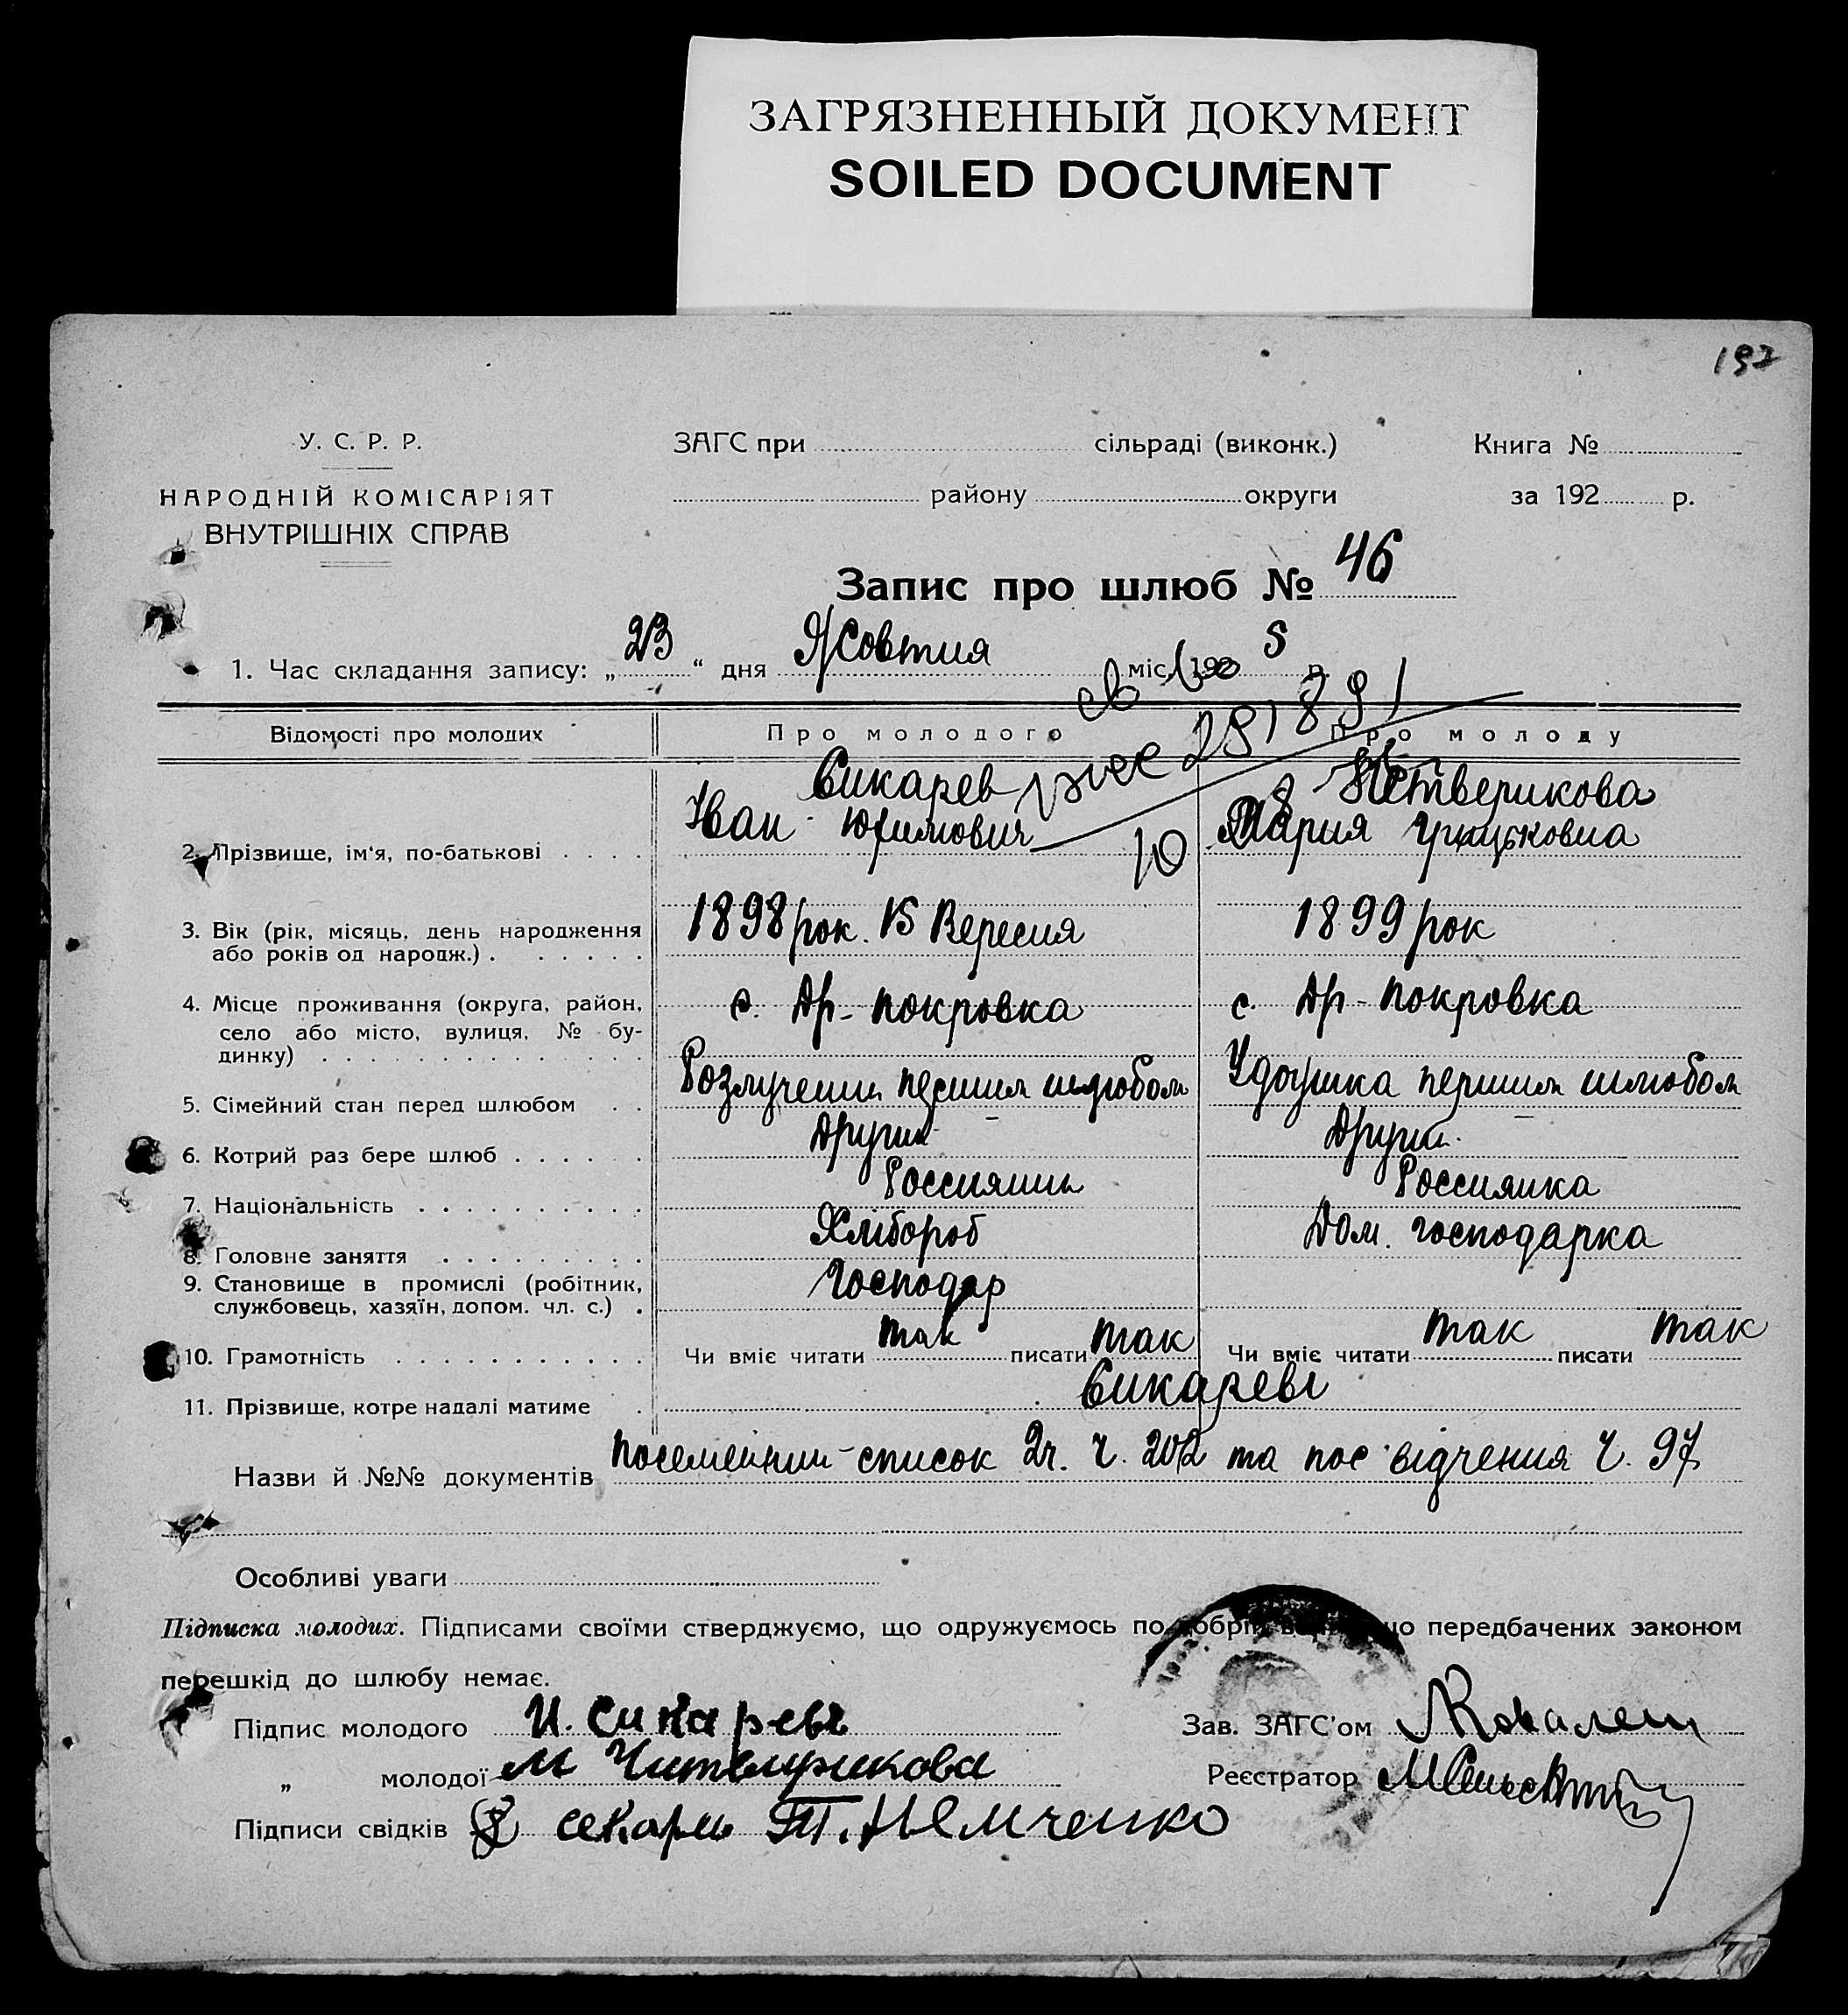 ЗАГРЯЗНЕННЫЙ ДОКУМЕНТ
SOILED DOCUMENT
У. С. Р. Р.
НАРОДНІЙ КОМІСАРІЯТ
ВНУТРІШНІХ СПРАВ
ЗАГС при сільраді (виконк.)
району округи
Книга №
за 192 р.
Запис про шлюб № 46
1. Час складання запису: „23“ дня Жовтня міс. 1925 р.
Відомості про молодих Про молодого Про молоду
Сикарев Четверикова
2. Прізвище, ім'я, по-батькові . . . . Иван Юхимович Мария Грицьковна
10
3. Вік (рік, місяць, день народження 1898 рок. 15 Вересня 1899 рок
або років од народж.) . . . . . .
4. Місце проживання (округа, район, с. Др-Покровка с. Др-Покровка
село або місто, вулиця, № бу-
динку) . . . . . . . . . . . . . .
5. Сімейний стан перед шлюбом . . Розлучений першим шлюбом Удовушка першим шлюбом
6. Котрий раз бере шлюб . . . . . . Другий Другий
7. Національність . . . . . . . . . . Россиянин Россиянка
8. Головне заняття . . . . . . . . . Хлібороб Дом. господарка
9. Становище в промислі (робітник, Господар
службовець, хазяїн, допом. чл. с.) .
10. Грамотність . . . . . . . . . . . Чи вміє читати так писати так Чи вміє читати так писати так
11. Прізвище, котре надалі матиме . Сикареві
Назви й №№ документів посемейний список 2ч. ч. 202 та посвідчення ч. 97
Особливі уваги
Підписка молодих. Підписами своїми стверджуємо, що одружуємось по добрій що передбачених законом
перешкід до шлюбу немає.
Підпис молодого И. Сикаревъ Зав. ЗАГС'ом
„ молодої М Читвирикова Реєстратор
Підписи свідків секарь Т. Немченко